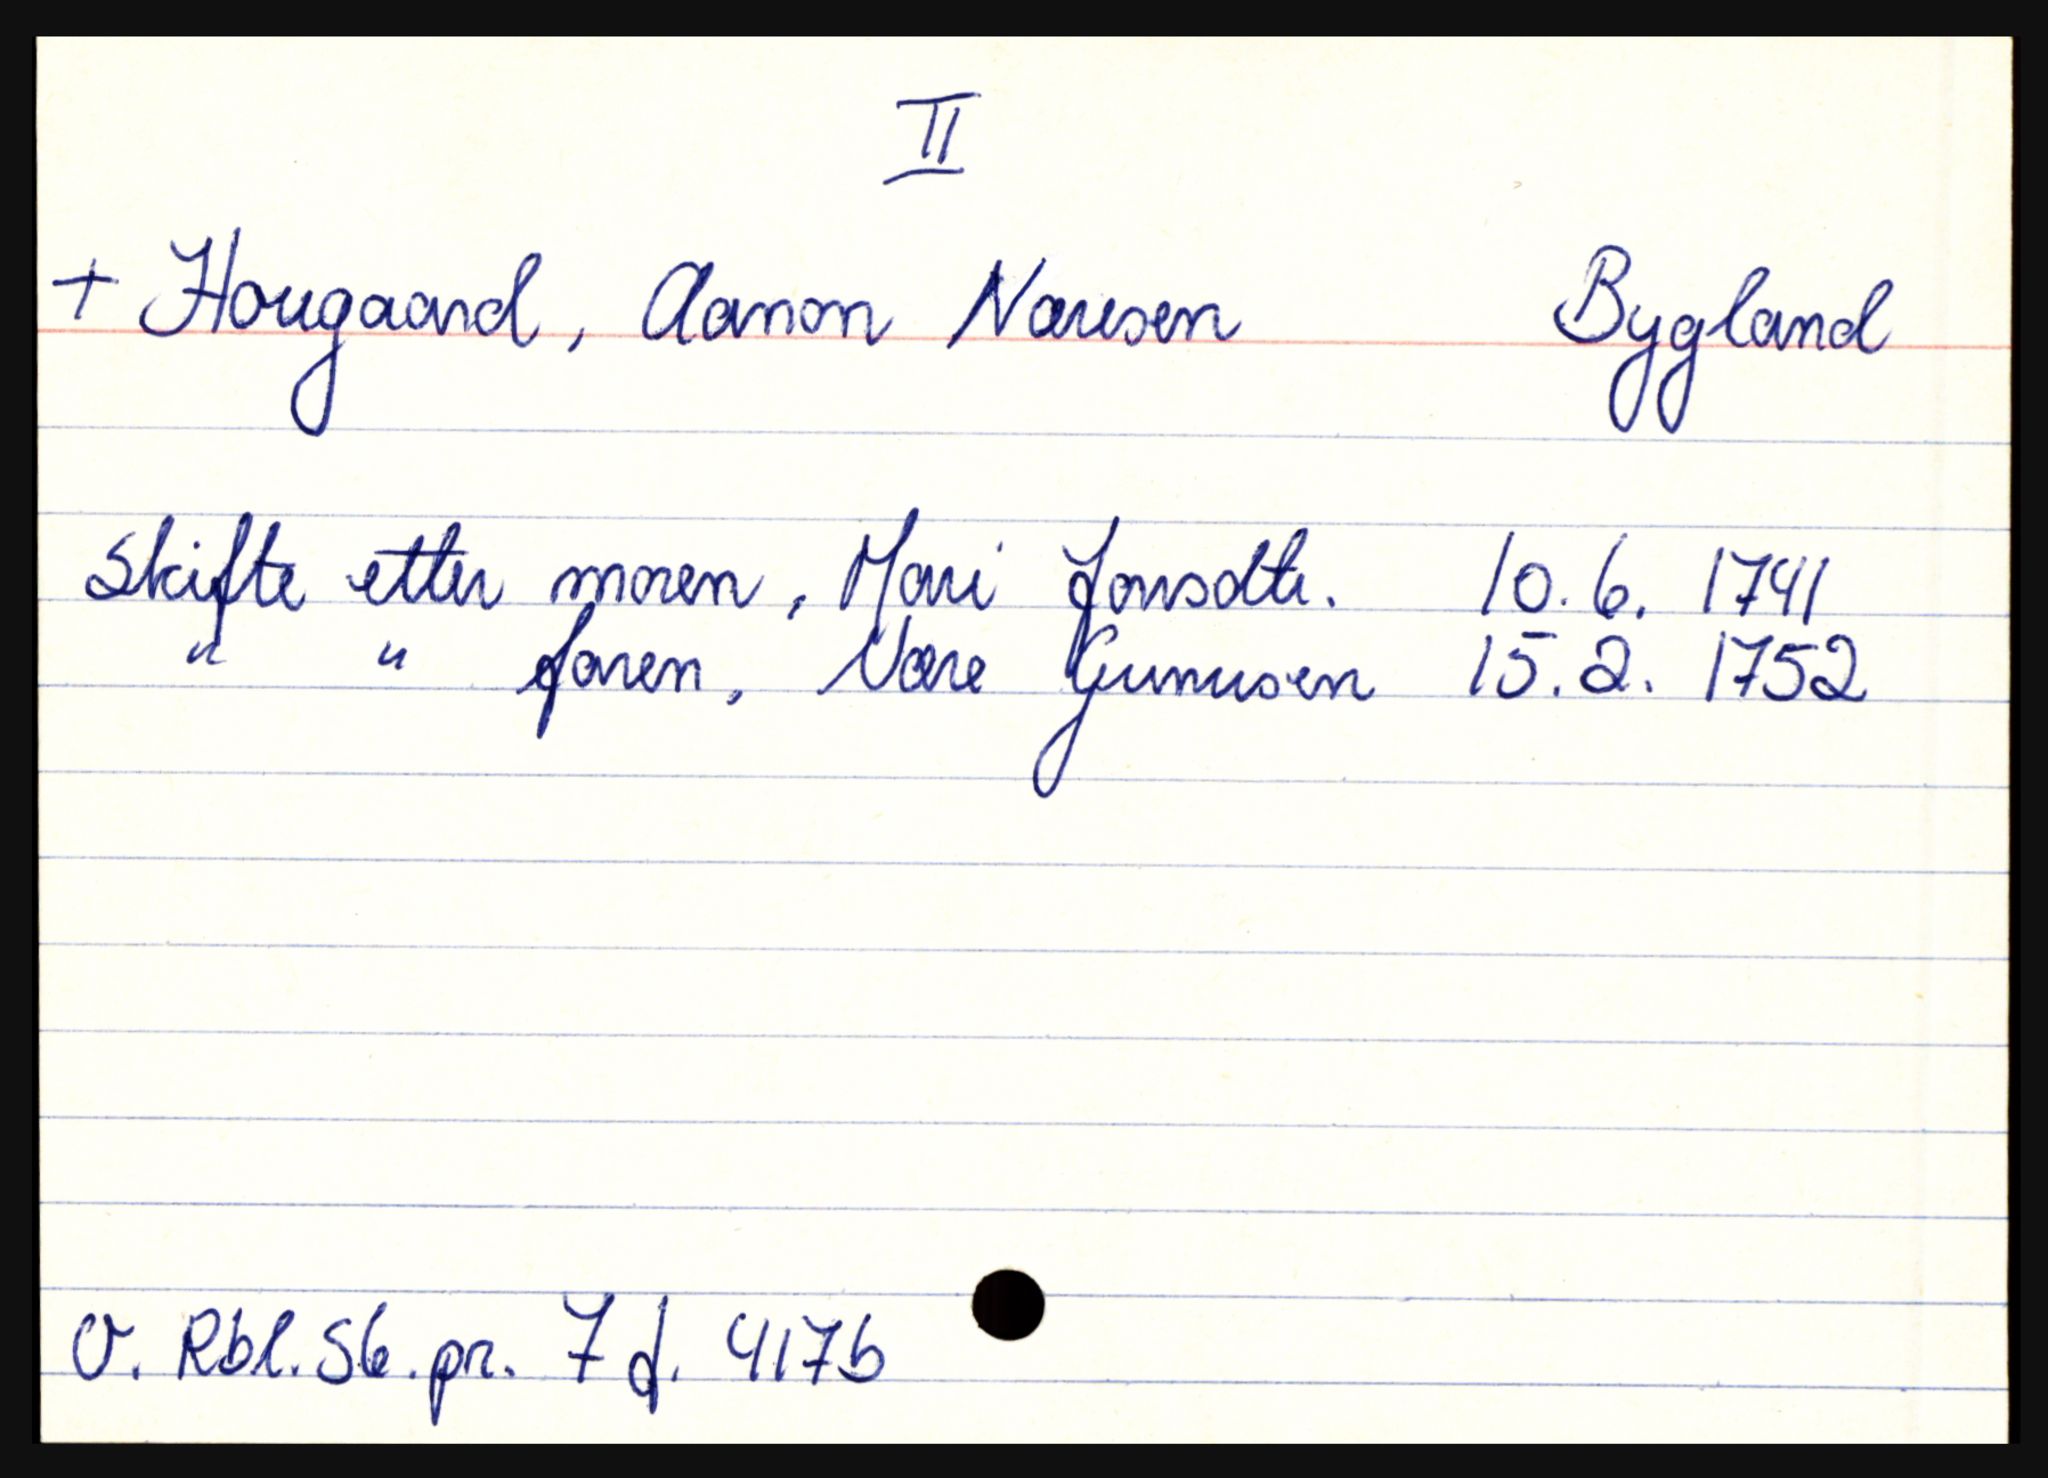 II
+ Hougaard, Aanon Næresen Bygland
Skifte etter moren, Mari Jonsdtr. 10.6. 1741
" " faren, Nære Gunnusen 15.2. 1752
O. Rbl. Sk. pr. 7 f. 417b